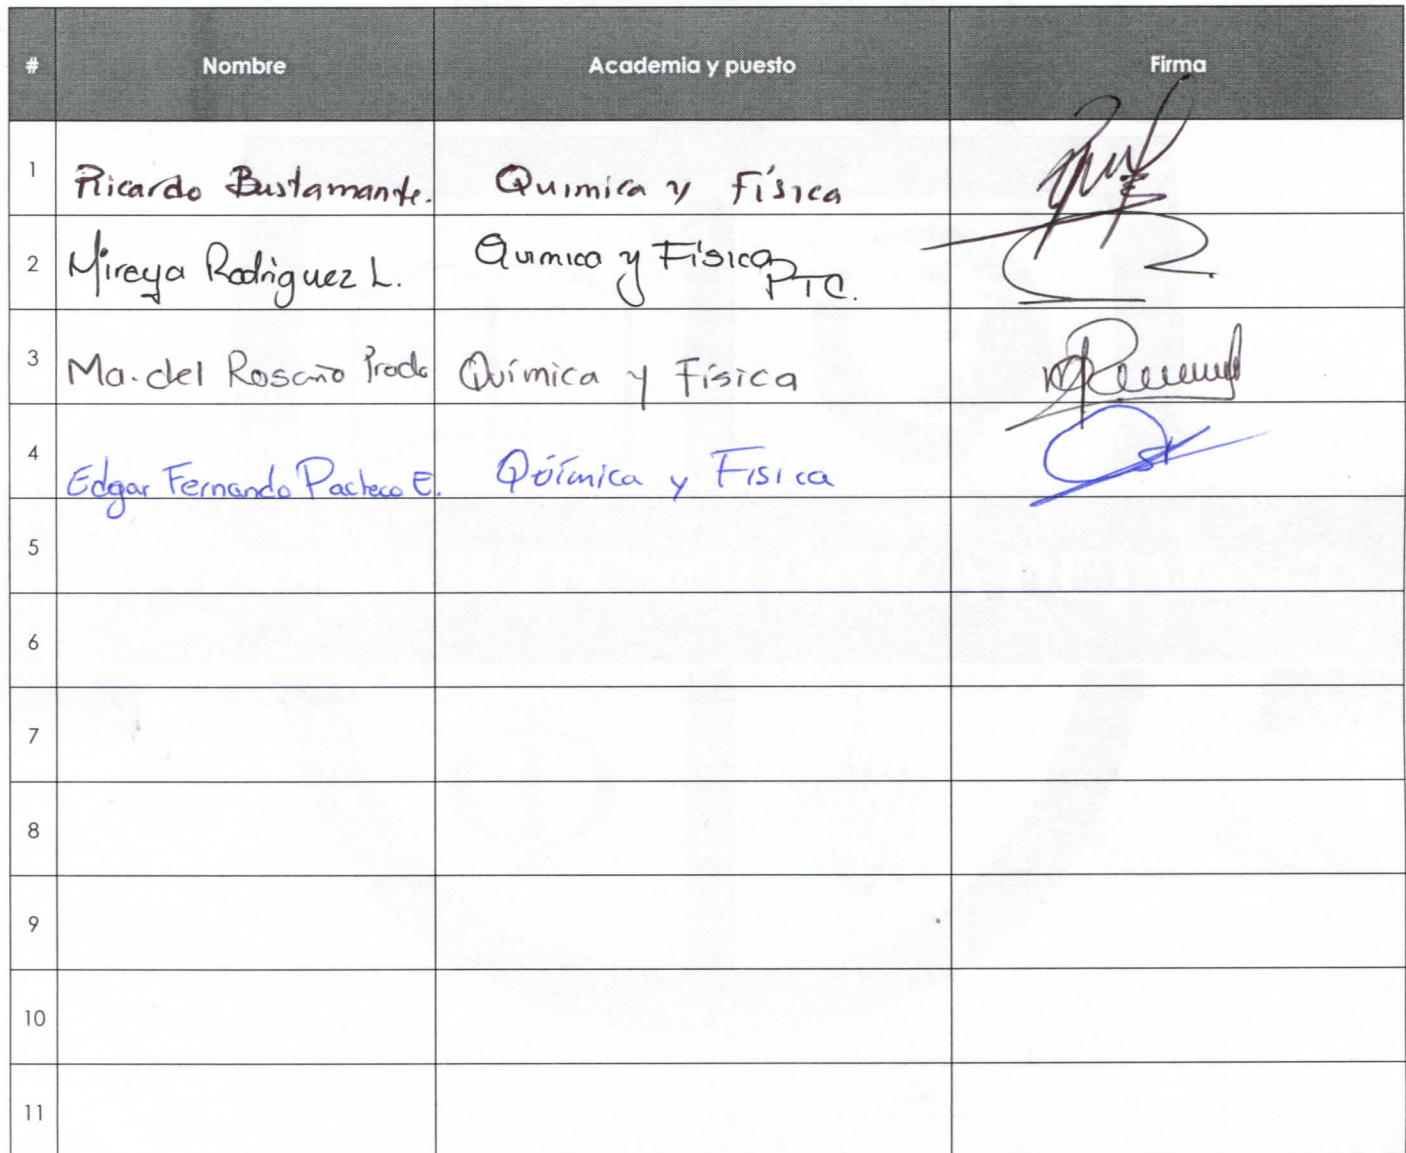 # Nombre Academia y puesto Firma
1 Ricardo Bustamante. Quimica y Física
2 Mireya Rodriguez L. Quimica y Física PTC.
3 Ma. del Rosario Prado Química y Física
4 Edgar Fernando Pacheco E. Química y Fisica
5
6
7
8
9
10
11